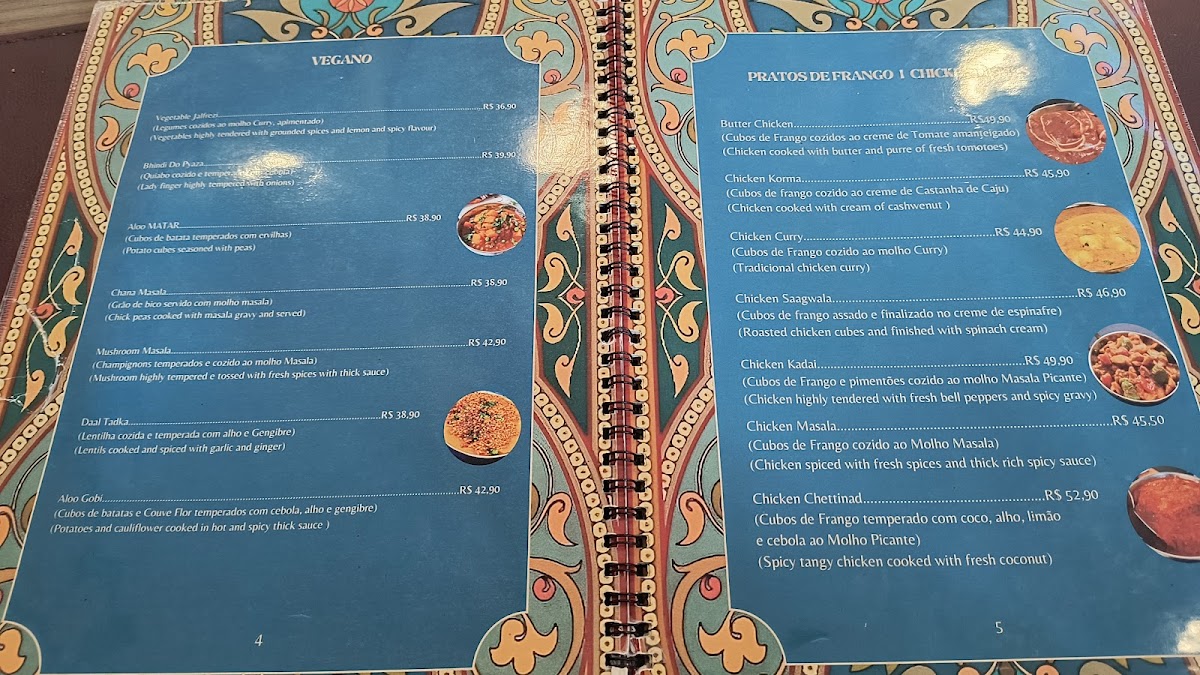 VEGANO
Vegetable Jalfrezi R$ 36,90
(Legumes cozidos ao molho Curry, apimentado)
(Vegetables highly tendered with grounded spices and lemon and spicy flavour)
Bhindi Do Pyaza R$ 39,90
(Quiabo cozido e temperado com cebola)
(Lady finger highly tempered with onions)
Aloo MATAR R$ 38,90
(Cubos de batata temperados com ervilhas)
(Potato cubes seasoned with peas)
Chana Masala R$ 38,90
(Grão de bico servido com molho masala)
(Chick peas cooked with masala gravy and served)
Mushroom Masala R$ 42,90
(Champignons temperados e cozido ao molho Masala)
(Mushroom highly tempered e tossed with fresh spices with thick sauce)
Daal Tadka R$ 38,90
(Lentilha cozida e temperada com alho e Gengibre)
(Lentils cooked and spiced with garlic and ginger)
Aloo Gobi R$ 42,90
(Cubos de batatas e Couve Flor temperados com cebola, alho e gengibre)
(Potatoes and cauliflower cooked in hot and spicy thick sauce )
4
PRATOS DE FRANGO
Butter Chicken R$49,90
(Cubos de Frango cozidos ao creme de Tomate amanteigado)
(Chicken cooked with butter and purre of fresh tomotoes)
Chicken Korma R$ 45,90
(Cubos de frango cozido ao creme de Castanha de Caju)
(Chicken cooked with cream of cashwenut )
Chicken Curry R$ 44,90
(Cubos de Frango cozido ao molho Curry)
(Tradicional chicken curry)
Chicken Saagwala R$ 46,90
(Cubos de frango assado e finalizado no creme de espinafre)
(Roasted chicken cubes and finished with spinach cream)
Chicken Kadai R$ 49,90
(Cubos de Frango e pimentões cozido ao molho Masala Picante)
(Chicken highly tendered with fresh bell peppers and spicy gravy)
Chicken Masala R$ 45,50
(Cubos de Frango cozido ao Molho Masala)
(Chicken spiced with fresh spices and thick rich spicy sauce)
Chicken Chettinad R$ 52,90
(Cubos de Frango temperado com coco, alho, limão
e cebola ao Molho Picante)
(Spicy tangy chicken cooked with fresh coconut)
5